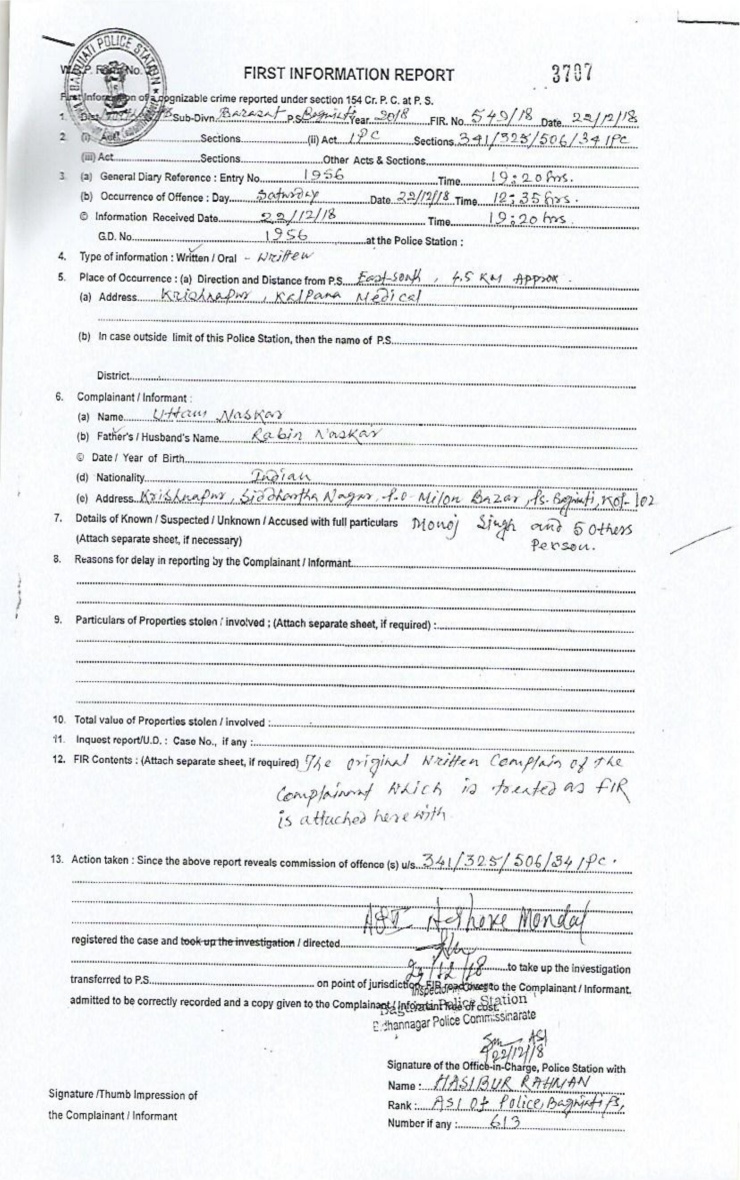 BAGUIATI POLICE STATION
W.B.P. Form No.
FIRST INFORMATION REPORT
3707
First Information of a cognizable crime reported under section 154 Cr. P. C. at P. S.
1. Dist. Sub-Divn. Barasat P.S. Baguiati Year 2018 FIR. No. 549/18 Date 22/12/18
2. (i) Act Sections (ii) Act IPC Sections 341/325/506/34 IPC
(iii) Act Sections Other Acts & Sections
3. (a) General Diary Reference : Entry No. 1956 Time 19:20 hrs.
(b) Occurrence of Offence : Day Saturday Date 22/12/18 Time 12:35 hrs.
© Information Received Date 22/12/18 Time 19:20 hrs.
G.D. No. 1956 at the Police Station :
4. Type of information : Written / Oral - Written
5. Place of Occurrence : (a) Direction and Distance from P.S. East-south, 4.5 KM Approx.
(a) Address Krishnapur, Kalpana Medical
(b) In case outside limit of this Police Station, then the name of P.S.
District
6. Complainant / Informant :
(a) Name Uttam Naskar
(b) Father's / Husband's Name Rabin Naskar
© Date / Year of Birth
(d) Nationality Indian
(e) Address Krishnapur, Siddhartha Nagar, P.O- Milon Bazar, Ps. Baguiati, Kol-102
7. Details of Known / Suspected / Unknown / Accused with full particulars Monoj Singh and 5 others
(Attach separate sheet, if necessary) Person.
8. Reasons for delay in reporting by the Complainant / Informant
9. Particulars of Properties stolen / involved ; (Attach separate sheet, if required) :
10. Total value of Properties stolen / involved :
11. Inquest report/U.D. : Case No., if any :
12. FIR Contents : (Attach separate sheet, if required) The original Written Complain of the
Complainant Which is treated as FIR
is attached here with
13. Action taken : Since the above report reveals commission of offence (s) u/s. 341/325/506/34 IPC.
ASI Ashoke Mondal
registered the case and took up the investigation / directed
22/12/18 to take up the investigation
transferred to P.S. on point of jurisdiction FIR read over to the Complainant / Informant.
Inspector-in-Charge
admitted to be correctly recorded and a copy given to the Complainant / Informant free of cost.
Baguiati Police Station
Bidhannagar Police Commissinarate
ASI
22/12/18
Signature of the Office-in-Charge, Police Station with
Name : HASIBUR RAHMAN
Signature /Thumb Impression of
Rank : ASI Of Police, Baguiati Ps,
the Complainant / Informant
Number if any : 613